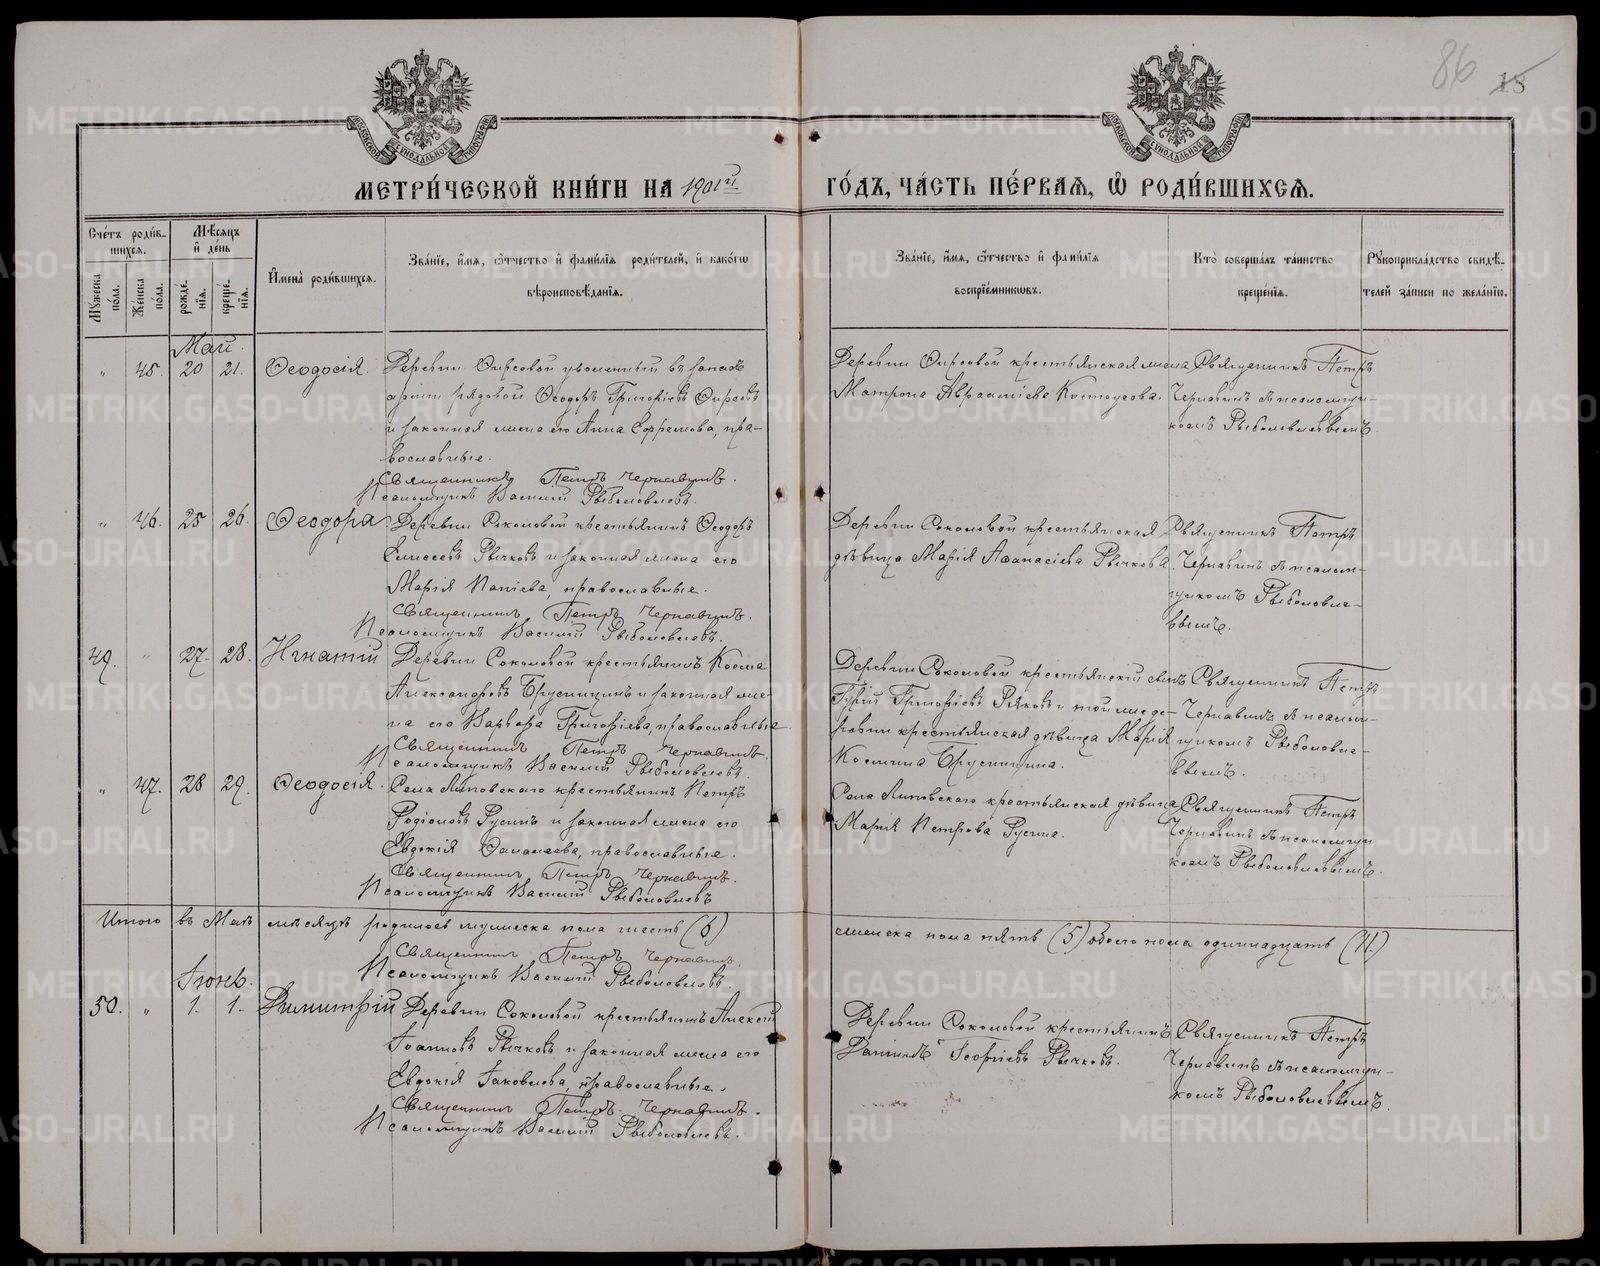 86 18
МОСКОВСКОЙ СѴНОДАЛЬНОЙ ТИПОГРАФІИ
МОСКОВСКОЙ СѴНОДАЛЬНОЙ ТИПОГРАФІИ
МЕТРИ́ЧЕСКОЙ КНИ́ГИ НА 1901й
ГО́ДЪ, ЧА́СТЬ ПЕ́РВАѦ, Ѡ҆ РОДИ́ВШИХСѦ.
Сче́тъ роди́в-
шихсѧ.
Мꙋ́жеска по́ла.
Же́нска по́ла.
Мѣ́сѧцъ и҆ де́нь
рожде́-нїѧ.
креще́-нїѧ.
И҆мена̀ роди́вшихсѧ.
Зва́нїе, и҆́мѧ, ѻ҆́тчество и҆ фами́лїѧ роди́телей, и҆ како́гѡ
вѣроисповѣ́данїѧ.
Зва́нїе, и҆́мѧ, ѻ҆́тчество и҆ фами́лїѧ
воспрїе́мникѡвъ.
Кто̀ соверша́лъ та́инство
креще́нїѧ.
Рꙋкоприкла́дство свидѣ́-
телей за́писи по жела́нїю.
Май.
" 45. 20 21. Ѳеодосія.
Деревни Фирсовой уволенный въ запасъ
арміи рядовой Ѳеодоръ Григоріевъ Фирсовъ
и законная жена его Анна Ефремова, пра-
вославные.
Священникъ Петръ Чернавинъ.
Псаломщикъ Василій Рыболовлевъ.
Деревни Фирсовой крестьянская жена
Матрона Авраамиева
Священникъ Петръ
Чернавинъ съ псаломщи-
комъ Рыболовлевымъ.
" 46. 25 26. Ѳеодора
Деревни Соколовой крестьянинъ Ѳеодоръ
Елисеевъ Рычковъ и законная жена его
Марія, православные.
Священникъ Петръ Чернавинъ.
Псаломщикъ Василій Рыболовлевъ.
Деревни Соколовой крестьянская
дѣвица Марія Аѳанасіева Рычкова.
Священникъ Петръ
Чернавинъ съ псалом-
щикомъ Рыболовле-
вымъ.
49. " 27. 28. Игнатій
Деревни Соколовой крестьянинъ Косма
Александровъ Брусницинъ и законная же-
на его Варвара Григоріева, православные
Священникъ Петръ Чернавинъ.
Псаломщикъ Василій Рыболовлевъ.
Деревни Соколовой крестьянскій сынъ
Гурій Григоріевъ и той же де-
ревни крестьянская дѣвица Марія
Космина Брусницина.
Священникъ Петръ
Чернавинъ съ псалом-
щикомъ Рыболовле-
вымъ.
" 47. 28 29. Ѳеодосія.
Села Липовскаго крестьянинъ Петръ
Родіоновъ Русинъ и законная жена его
Евдокія, православные.
Священникъ Петръ Чернавинъ.
Псаломщикъ Василій Рыболовлевъ
Села Липовскаго крестьянская дѣвица
Марія Петрова Русина.
Священникъ Петръ
Чернавинъ съ псаломщи-
комъ Рыболовлевымъ.
Итого въ Маѣ мѣсяцѣ родилось мужеска пола шесть (6)
женска пола пять (5) обоего пола одиннадцать (11.)
Священникъ Петръ Чернавинъ.
Псаломщикъ Василій Рыболовлевъ.
Іюнь.
50. " 1. 1. Димитрій
Деревни Соколовой крестьянинъ Алексій
Іоанновъ Рычковъ и законная жена его
Евдокія Іаковлова, православные.
Священникъ Петръ Чернавинъ.
Псаломщикъ Василій Рыболовлевъ.
Деревни Соколовой крестьянинъ
Даніилъ Георгіевъ Рычковъ.
Священникъ Петръ
Чернавинъ съ псаломщи-
комъ Рыболовлевымъ.
METRIKI.GASO-URAL.RU